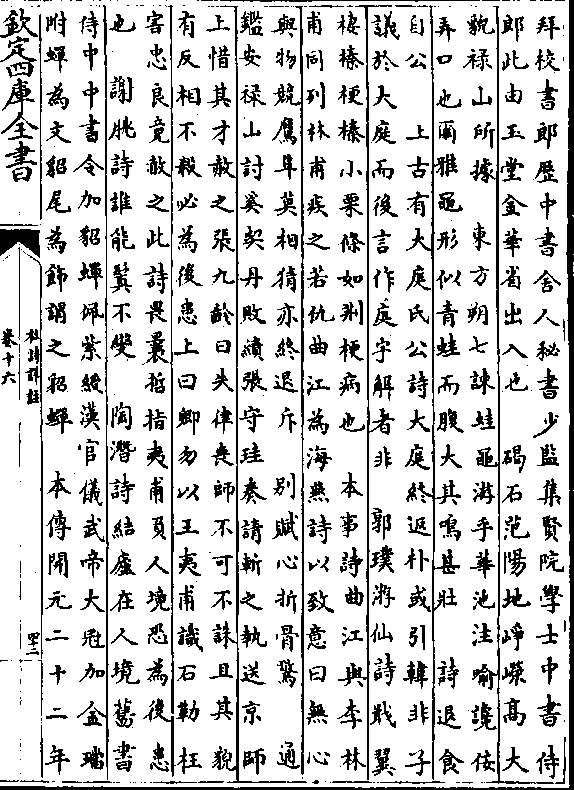 拜校書郎歴中書舍人秘書少監集賢院學士中書侍
郎此由玉堂金華省出入也　碣石范陽地崢嶸髙大
貌禄山所據　東方朔七諫蛙黽游乎華池注喻讒佞
弄口也爾雅黽形似青蛙而腹大其鳴甚壮　詩退食
自公　上古有大庭氏公詩大庭終返朴或引韓非子
議於大庭而後言作庭字解者非　郭璞游仙詩戢翼
棲榛梗榛小栗條如荆梗病也　本事詩曲江與李林
甫同列林甫疾之若仇曲江為海燕詩以致意曰無心
與物競鷹隼莫相猜亦終退斥　别賦心折骨驚　通
鑑安禄山討奚契丹敗績張守珪奏請斬之執送京師
上惜其才赦之張九齡曰失律喪師不可不誅且其貌
有反相不殺必為後患上曰卿勿以王夷甫識石勒枉
害忠良竟赦之此詩畏曩哲指夷甫負人境恐為後患
也　謝朓詩誰能鬒不變　陶潛詩結廬在人境舊書
侍中中書令加貂蟬佩紫綬漢官儀武帝大冠加金璫
附蟬為文貂尾為飾謂之貂蟬　本傳開元二十二年
欽定四庫全書
杜詩詳註
卷十六